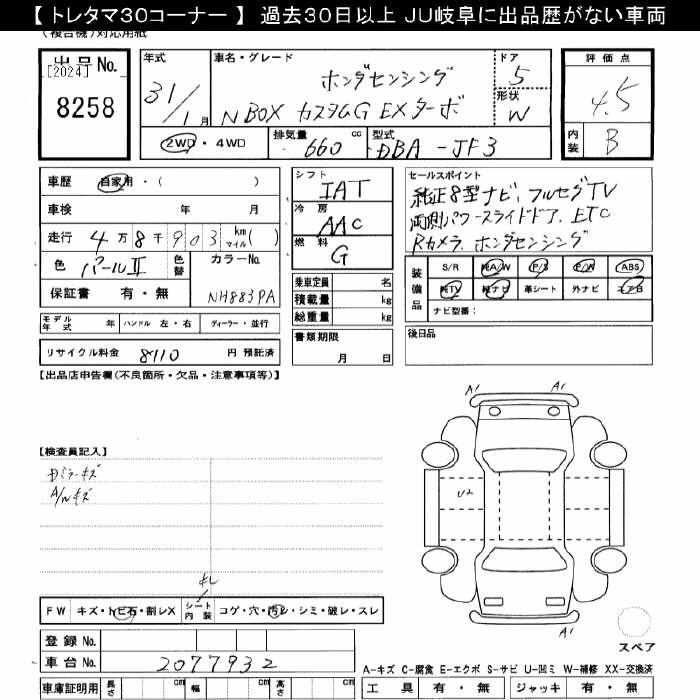 【 トレタマ30コーナー 】 過去30日以上 JU岐阜に出品歴がない車両
(複合機)対応用紙
出品No.
[2024]
8258
年式
31/1月
車名・グレード
ホンダセンシング
N BOX カスタムG EXターボ
ドア
5
形状
W
評価点
4.5
内装
B
2WD・4WD
排気量
660 cc
型式
DBA - JF3
車歴 自家用・( )
車検 年 月
走行 4万8千903 km マイル( )
色 パールII 色替 カラーNo.
保証書 有・無 NH883PA
シフト
IAT
冷房
AAC
燃料
G
乗車定員 名
積載量 kg
総重量 kg
書類期限
月 日
セールスポイント
純正8型ナビ、フルセグTV
両側パワースライドドア、ETC
Rカメラ、ホンダセンシング
装備品
S/R 純A/W P/S P/W ABS
純TV 純ナビ 革シート 外ナビ エアB
ナビ型番:
後日品
モデル年式 年 ハンドル 左・右 ディーラー・並行
リサイクル料金 8110 円 預託済
【出品店申告欄(不良箇所・欠品・注意事項等)】
【検査員記入】
Dミラーキズ
A/Wキズ
A1 A1
U2
A1
キレ
FW キズ・トビ石・割レX シート内装 コゲ・穴・汚レ・シミ・破レ・スレ
スペア
登録No.
車台No. 2077932
A-キズ C-腐食 E-エクボ S-サビ U-凹ミ W-補修 XX-交換済
車庫証明用 長さ cm 幅 cm 高さ cm
工具 有・無 ジャッキ 有・無